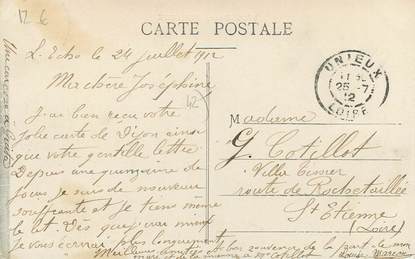 12 €
CARTE POSTALE
L'Echo le 24 juillet 1912
Ma chère Joséphine
42
J'ai bien reçu votre
Jolie carte de Dijon ainsi
que votre gentille lettre
Depuis une quinzaine de
jours je suis de nouveau
souffrante et je tiens même
le lit. Dès que j'irai mieux
je vous écrirai plus longuement
Meilleures amitiés et bon souvenir de la part de mon
et de la mienne à Mr Cotillot
Louise
UNIEUX
25 -7
12
LOIRE
Madame
G. Cotillot
Villa
route de Rochetaillée
St Etienne
(Loire)